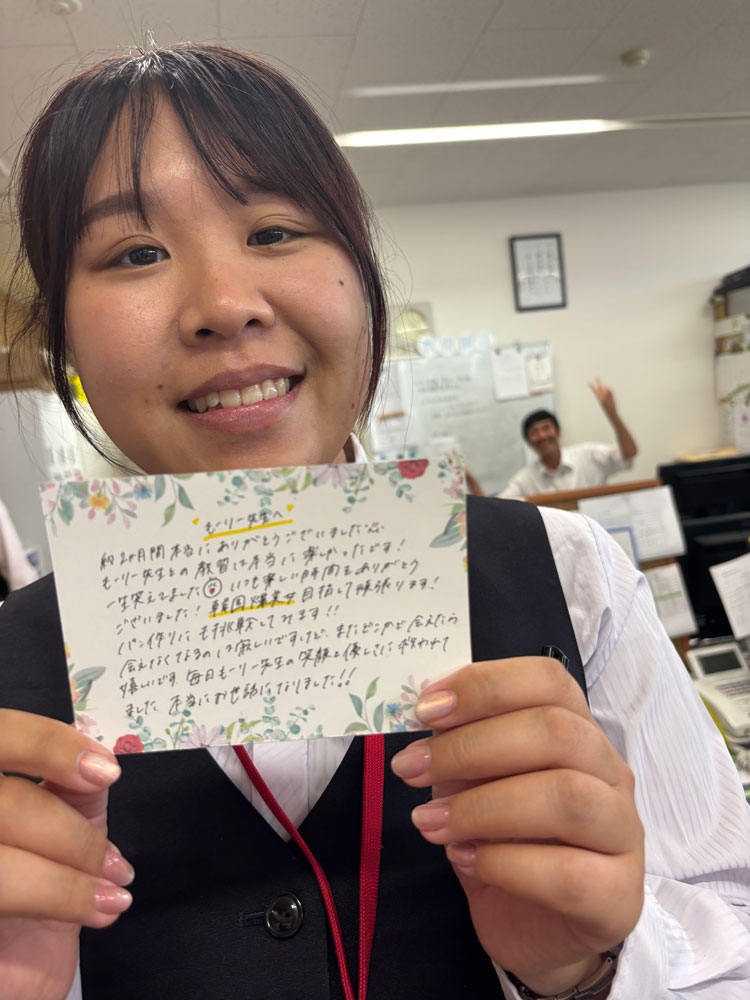 もーりー先生へ
約2ヶ月間本当にありがとうございました
もーりー先生との教習は本当に楽しかったです!
一生笑えてました いつも楽しい時間をありがとう
ございました! 韓国爆美女目指して頑張ります!
パン作りにも挑戦してみます!!
会えなくなるのは寂しいですけど、またどこかで会えたら
嬉しいです 毎日もーりー先生の笑顔と優しさに救われて
ました 本当にお世話になりました!!